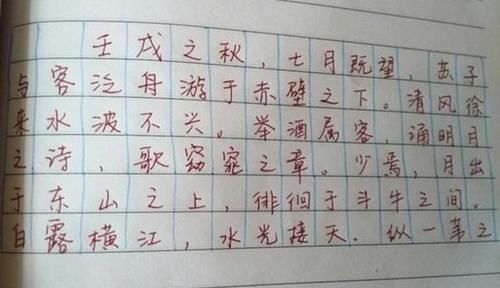 壬戌之秋，七月既望，苏子
与客泛舟游于赤壁之下。清风徐
来水波不兴。举酒属客，诵明月
之诗，歌窈窕之章。少焉，月出
于东山之上，徘徊于斗牛之间。
白露横江，水光接天．纵一苇之